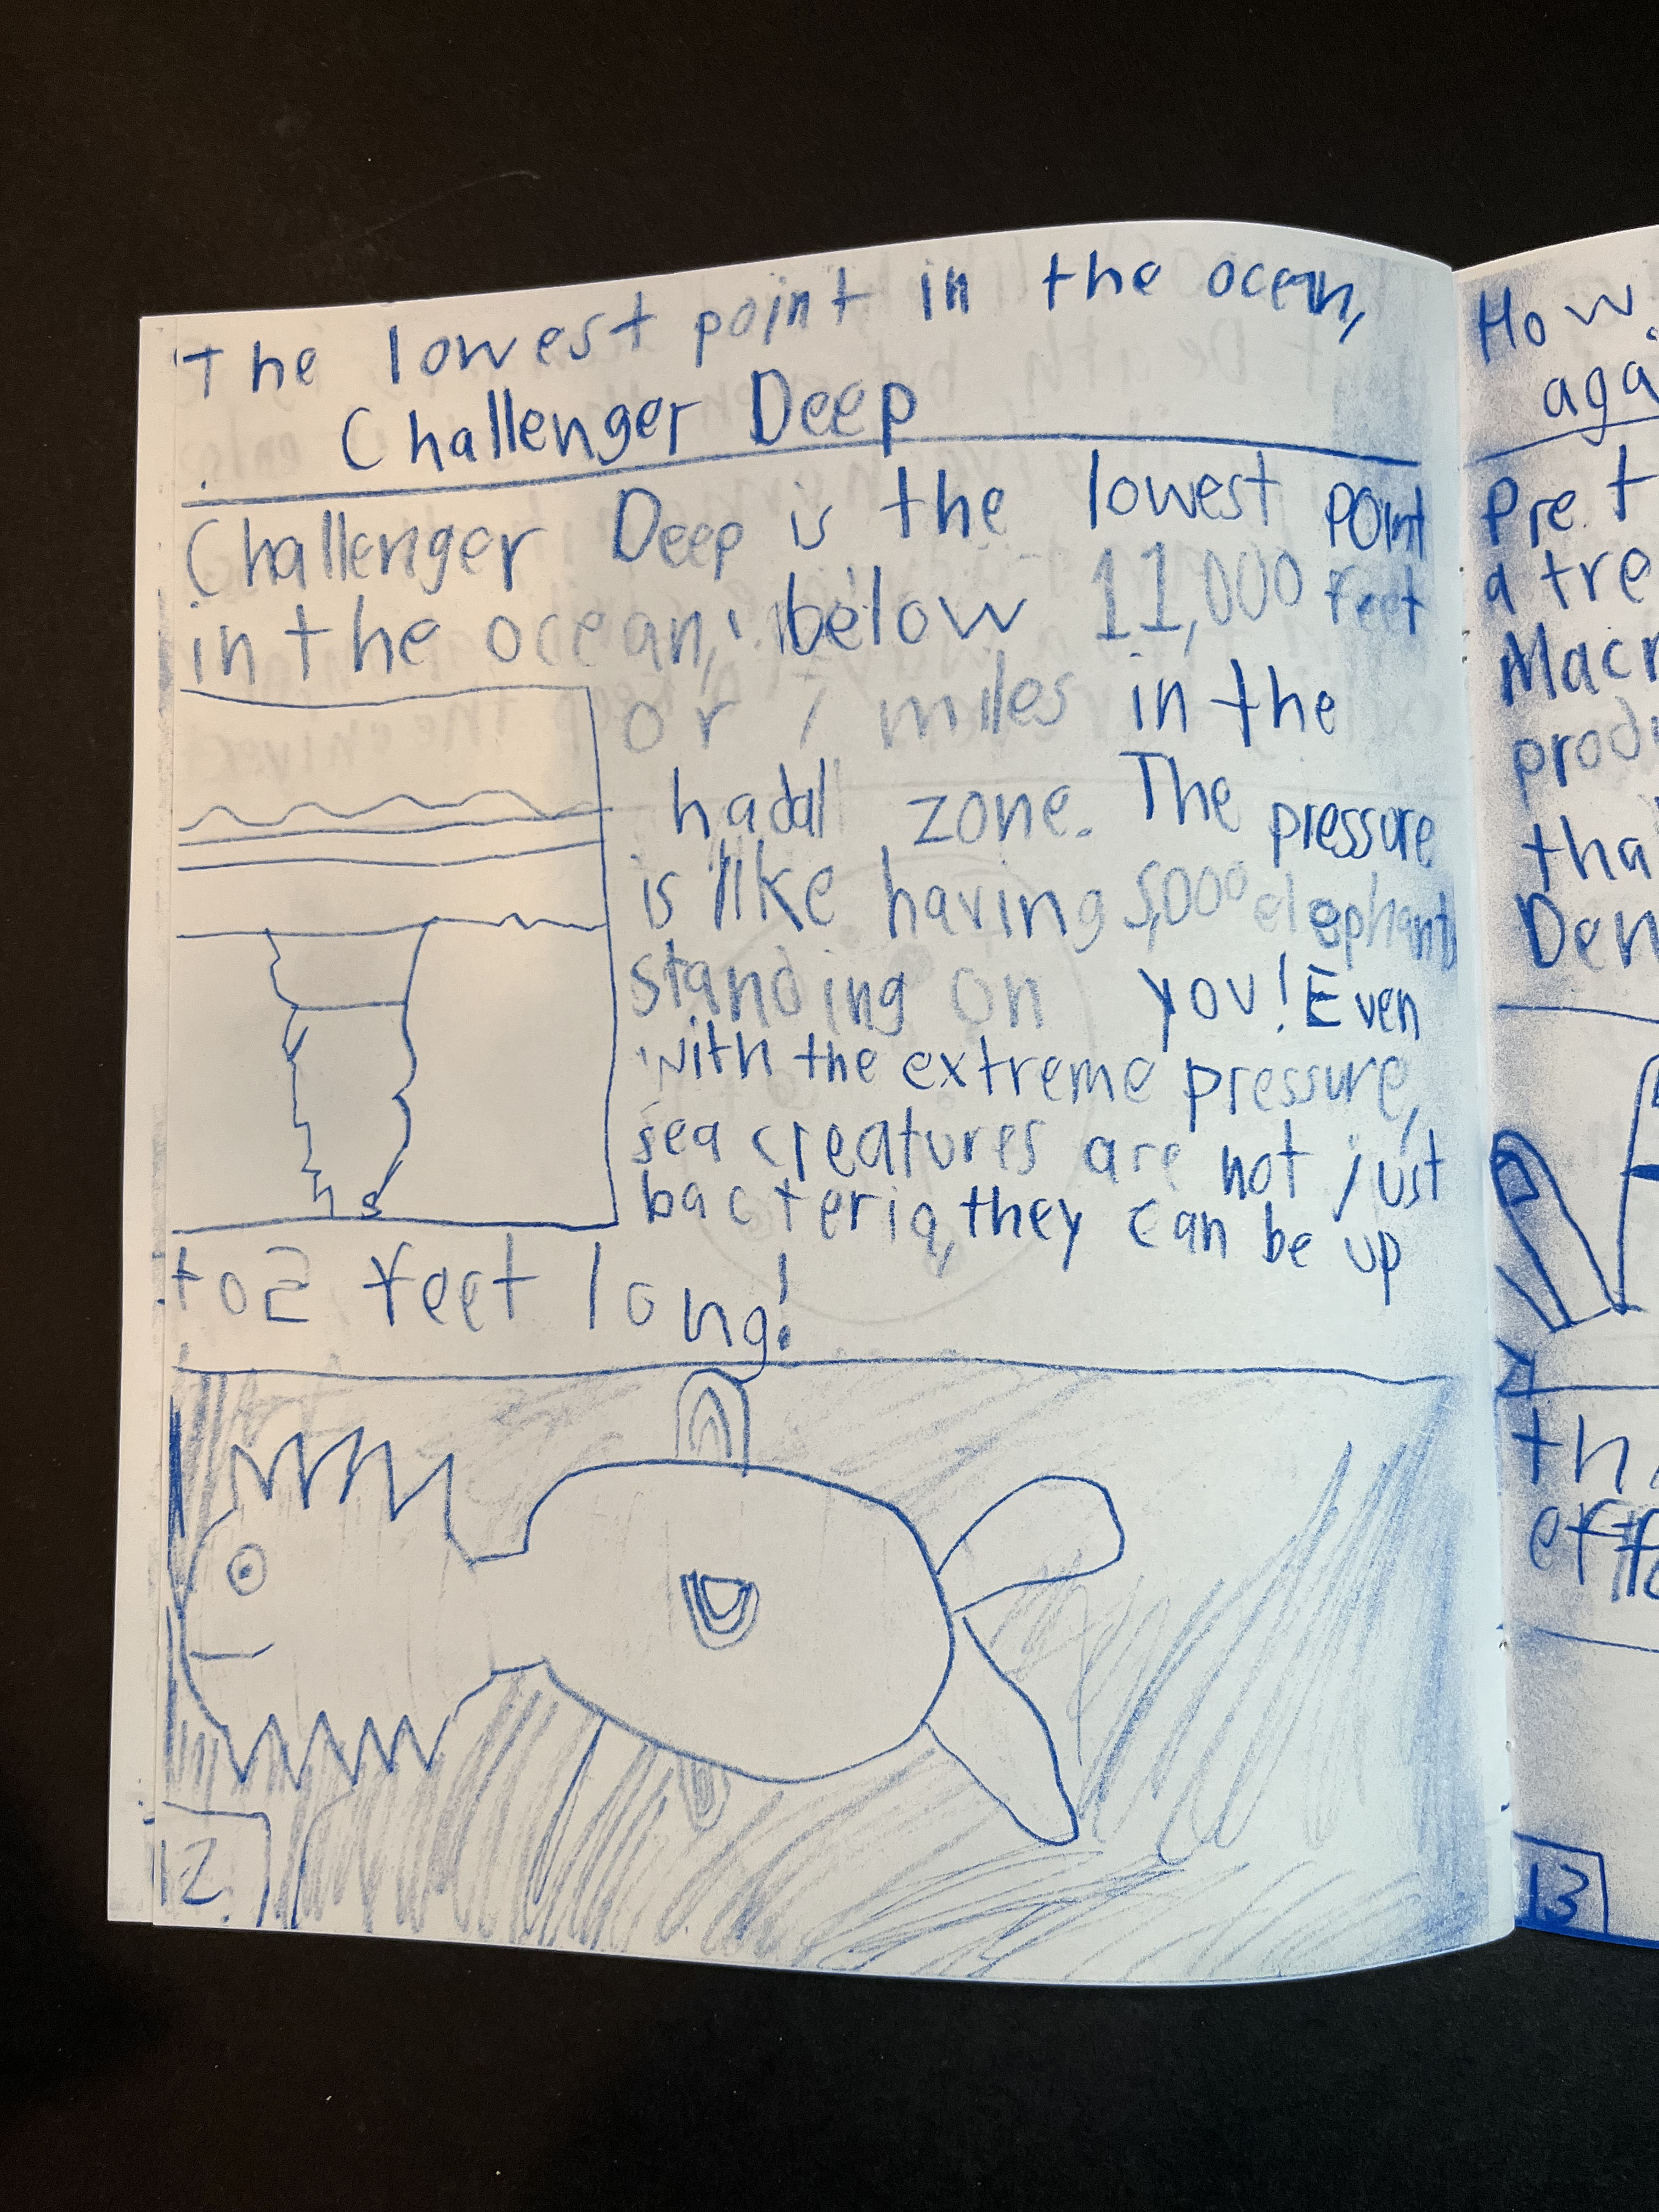 The lowest point in the ocean,
Challenger Deep
Challenger Deep is the lowest point
in the ocean, below 11,000 feet
or 7 miles in the
hadal zone. The pressure
is like having 5,000 elephants
standing on you! Even
with the extreme pressure,
sea creatures are not just
bacteria, they can be up
to 2 feet long!
12
How
aga
Pre t
a tre
Macr
produ
tha
Den
th
effe
13